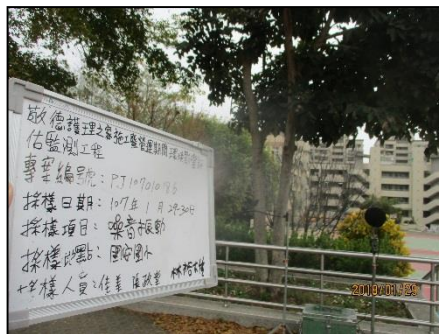 敬德護理之家施工暨營運期間環境影響評
估監測工程
專案編號：PJ10701083
採樣日期：107年 1月 29-30日
採樣項目：噪音振動
採樣地點：周界外
採樣人員：佳美
2018/01/29